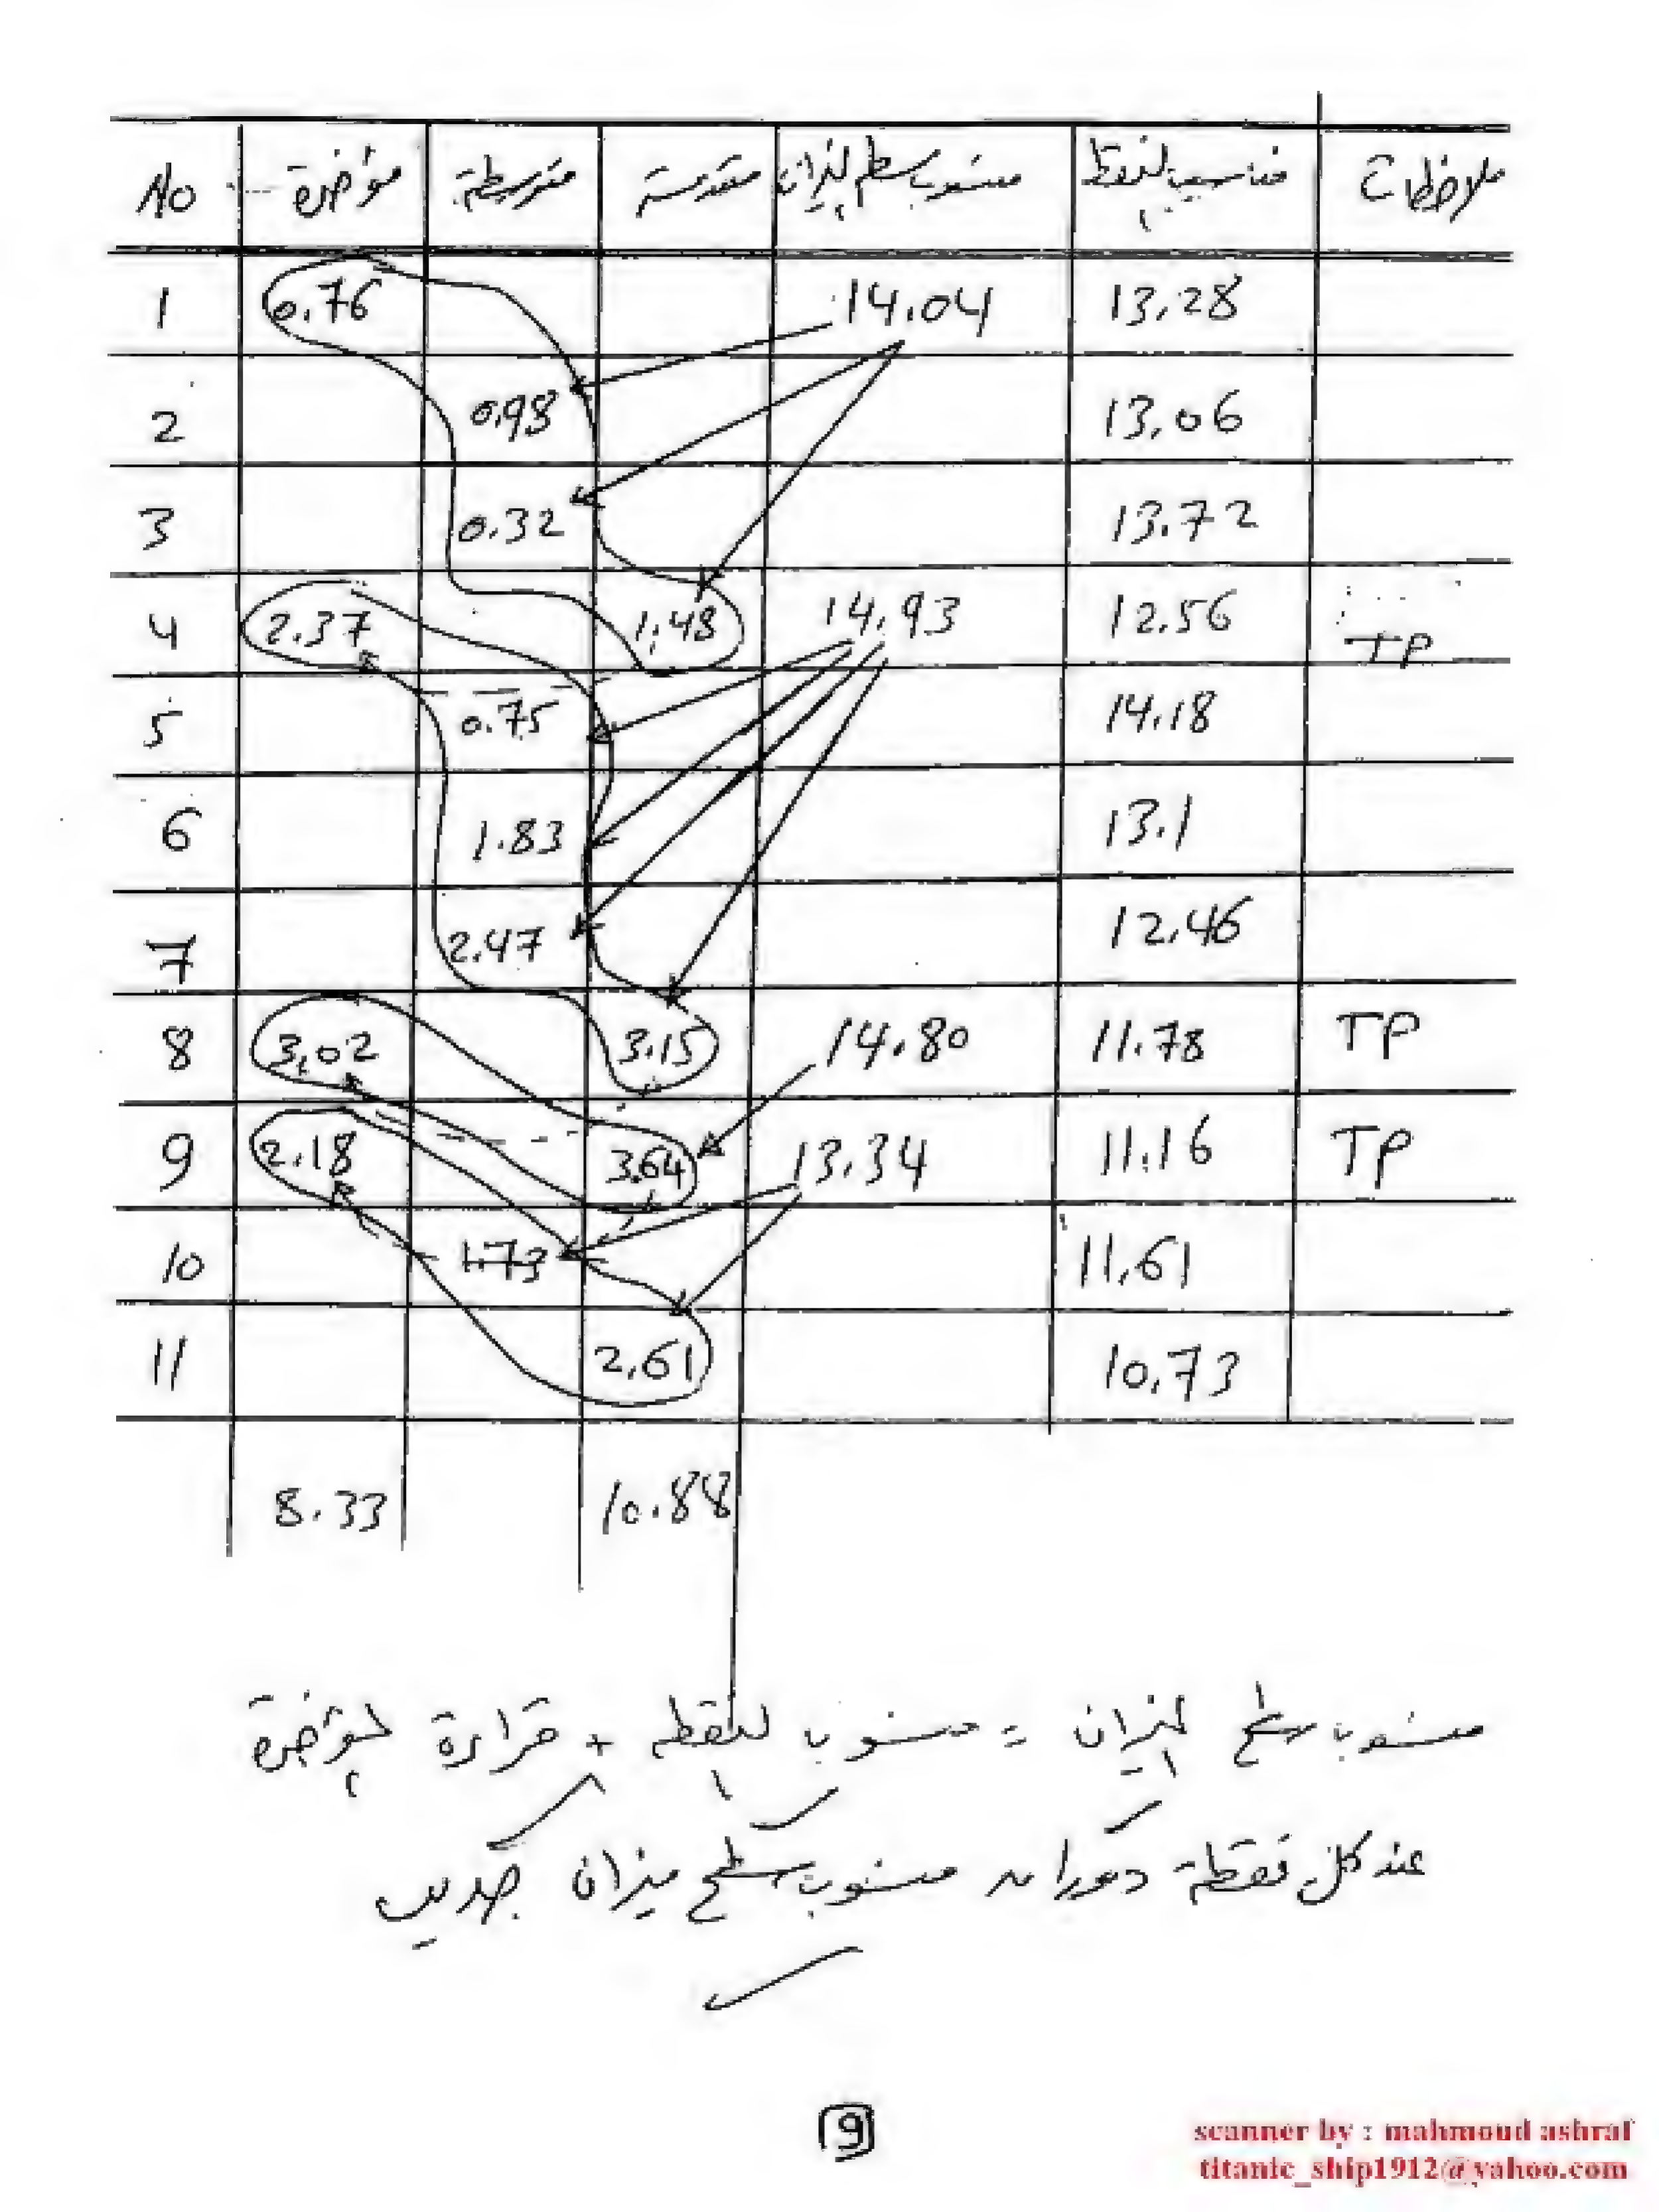 No مؤخرة متوسطة مقدمة منسوب سطح الميزان مناسيب النقط ملاحظات
1 0.76 14.04 13.28
2 0.98 13.06
3 0.32 13.72
4 2.37 1.48 14.93 12.56 TP
5 0.75 14.18
6 1.83 13.1
7 2.47 12.46
8 3.02 3.15 14.80 11.78 TP
9 2.18 3.64 13.34 11.16 TP
10 1.73 11.61
11 2.61 10.73
8.33 10.88
منسوب سطح الميزان = منسوب النقطه + قراءة المؤخرة
عند كل نقطة دوران منسوب سطح ميزان جديد
9
scanner by : mahmoud ashraf
titanic_ship1912@yahoo.com